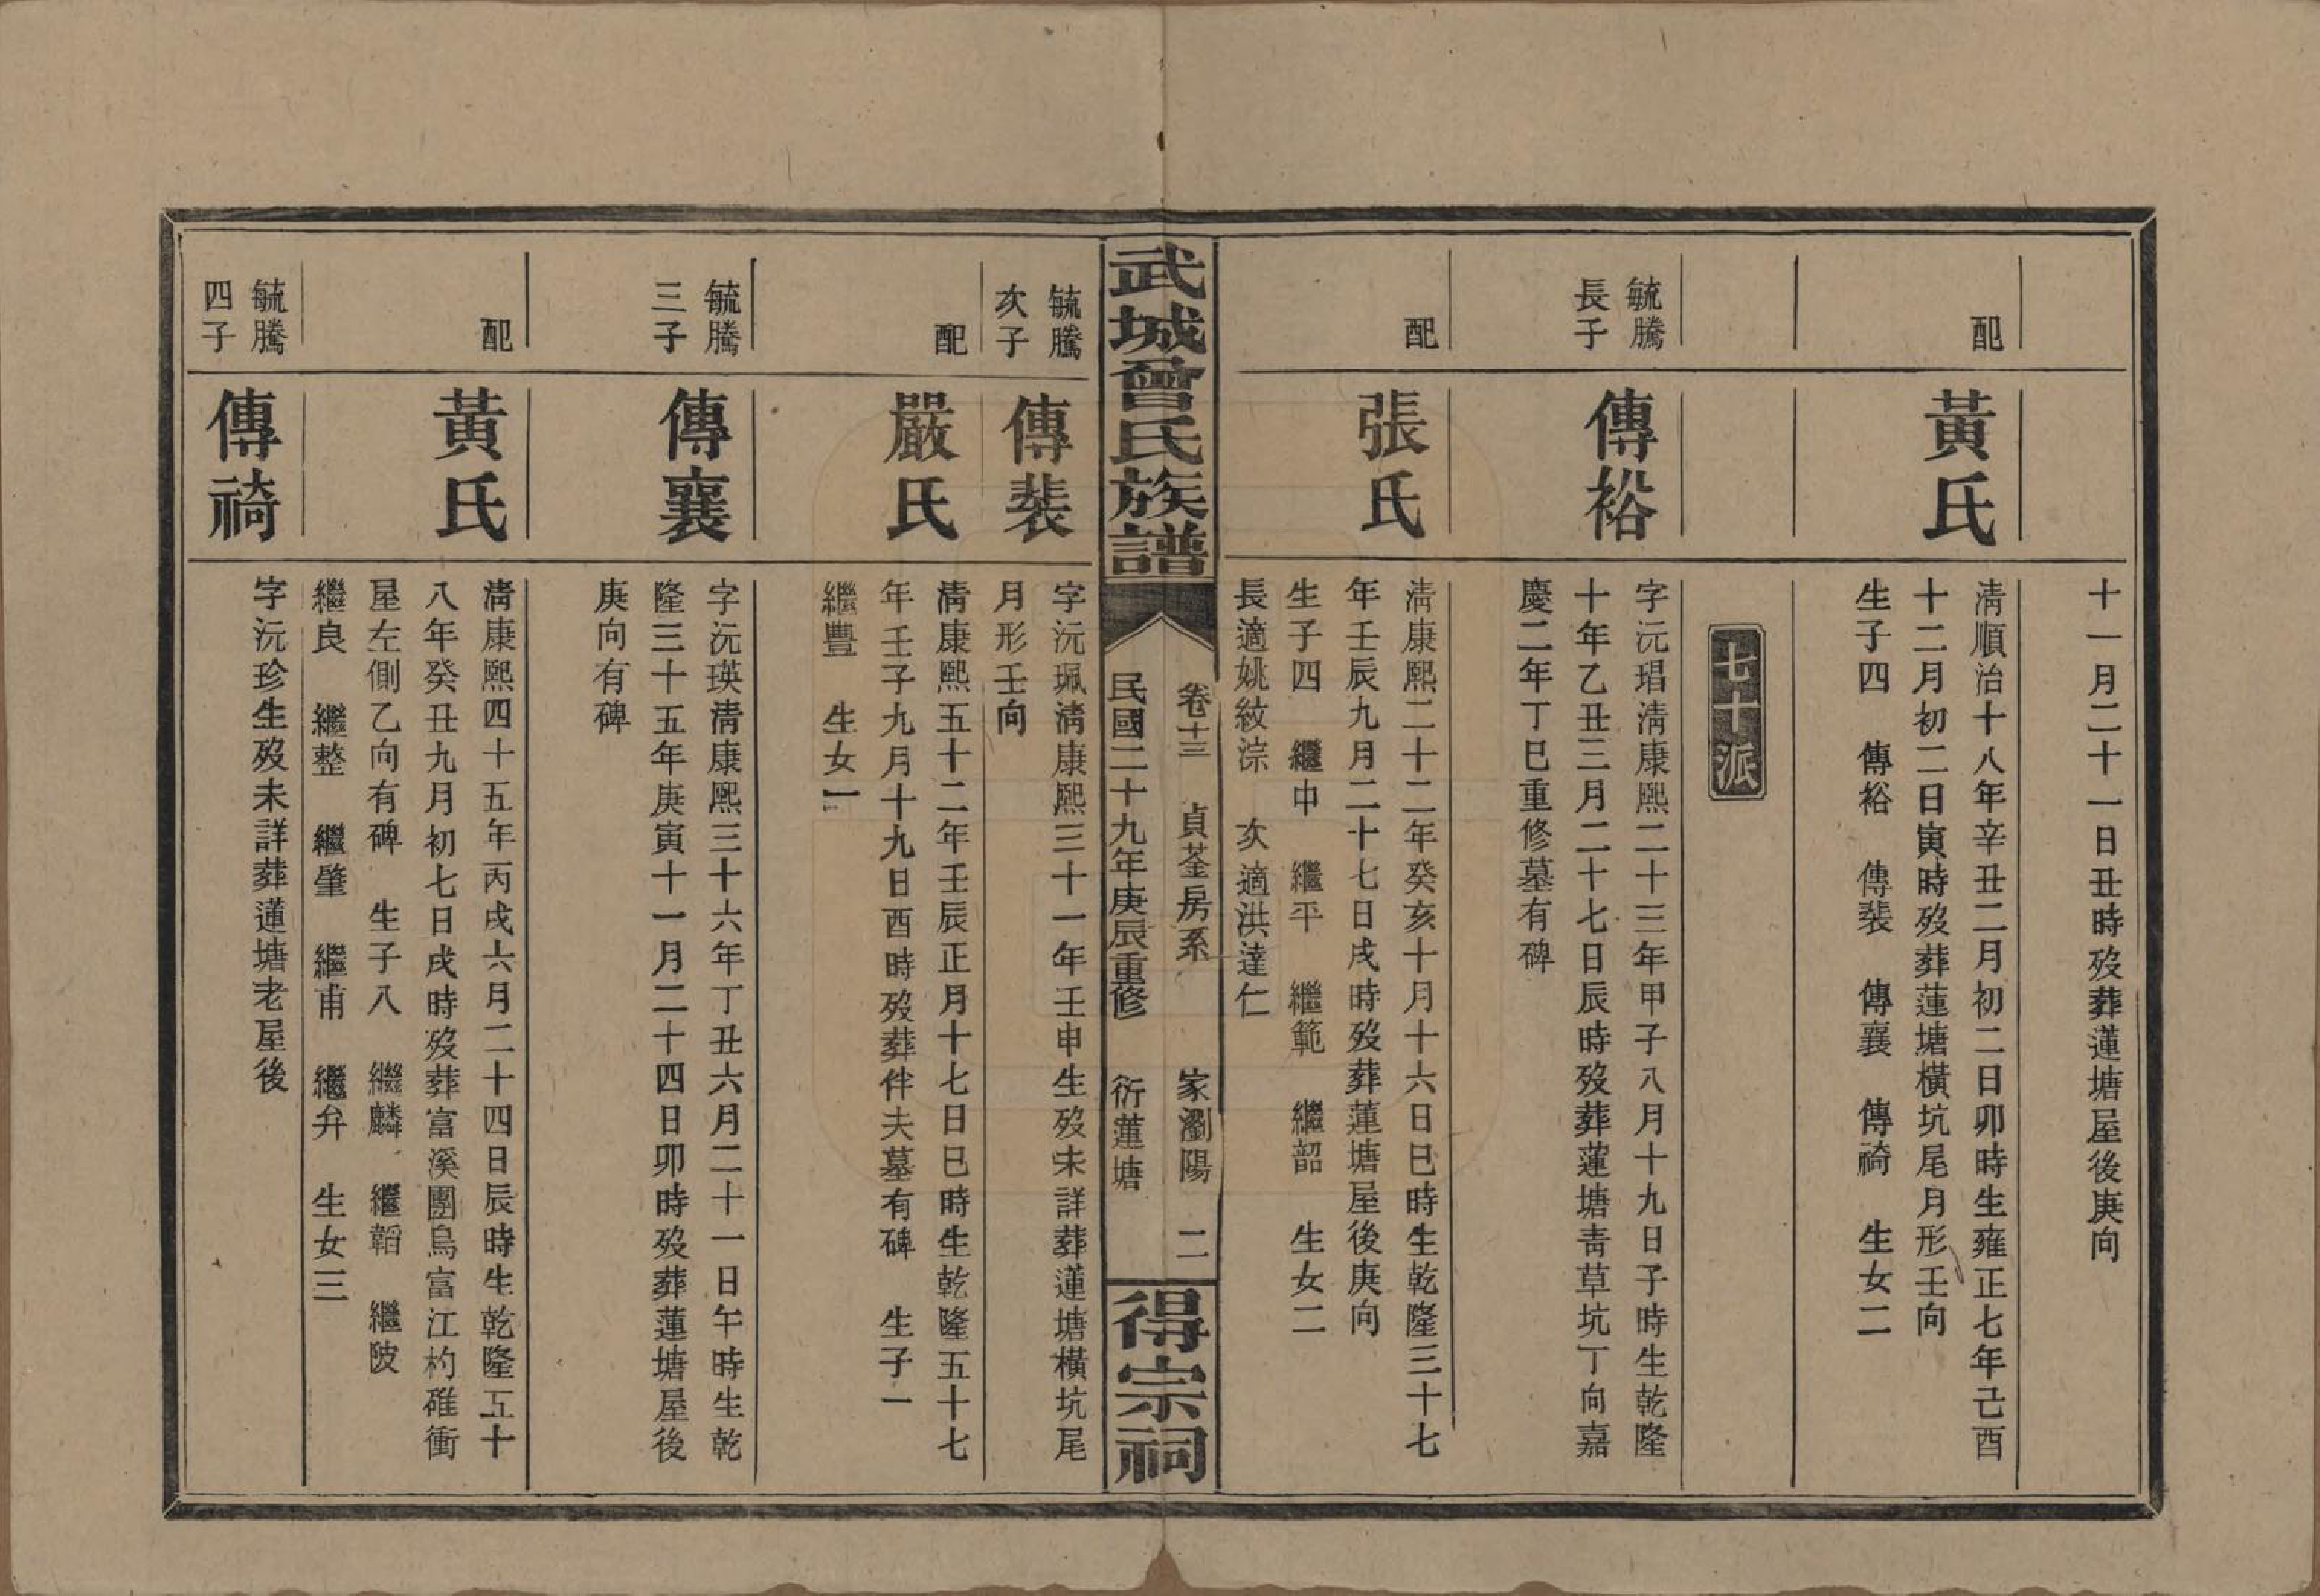 十一月二十一日丑時歿葬蓮塘屋後庚向
配
黃氏
清順治十八年辛丑二月初二日卯時生雍正七年己酉
十二月初二日寅時歿葬蓮塘橫坑尾月形壬向
生子四　傳裕　傳裴　傳襄　傳禘　生女二
七十派
毓騰
長子
傳裕
字沅琩清康熙二十三年甲子八月十九日子時生乾隆
十年乙丑三月二十七日辰時歿葬蓮塘青草坑丁向嘉
慶二年丁巳重修墓有碑
配
張氏
清康熙二十二年癸亥十月十六日巳時生乾隆三十七
年壬辰九月二十七日戌時歿葬蓮塘屋後庚向
生子四　繼中　繼平　繼範　繼韶　生女二
長適姚紋淙　次適洪達仁
武城曾氏族譜
卷十三　貞荃房系　家瀏陽　二
民國二十九年庚辰重修　衍蓮塘
得宗祠
毓騰
次子
傳裴
字沅珮清康熙三十一年壬申生歿未詳葬蓮塘橫坑尾
月形壬向
配
嚴氏
清康熙五十二年壬辰正月十七日巳時生乾隆五十七
年壬子九月十九日酉時歿葬伴夫墓有碑　生子一
繼豐　生女一
毓騰
三子
傳襄
字沅瑛清康熙三十六年丁丑六月二十一日午時生乾
隆三十五年庚寅十一月二十四日卯時歿葬蓮塘屋後
庚向有碑
配
黃氏
清康熙四十五年丙戌六月二十四日辰時生乾隆五十
八年癸丑九月初七日戌時歿葬富溪團烏富江杓碓衝
屋左側乙向有碑　生子八　繼麟　繼韜　繼陂
繼良　繼整　繼肇　繼甫　繼弁　生女三
毓騰
四子
傳禘
字沅珍生歿未詳葬蓮塘老屋後